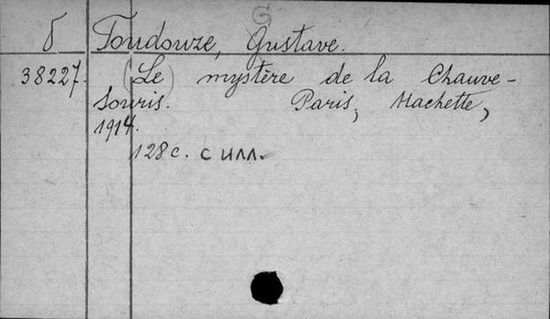 G
б Toudouze, Gustave.
38227. (Le) mystère de la Chauve-
Souris. Paris, Hachette,
1914.
128 с. с илл.